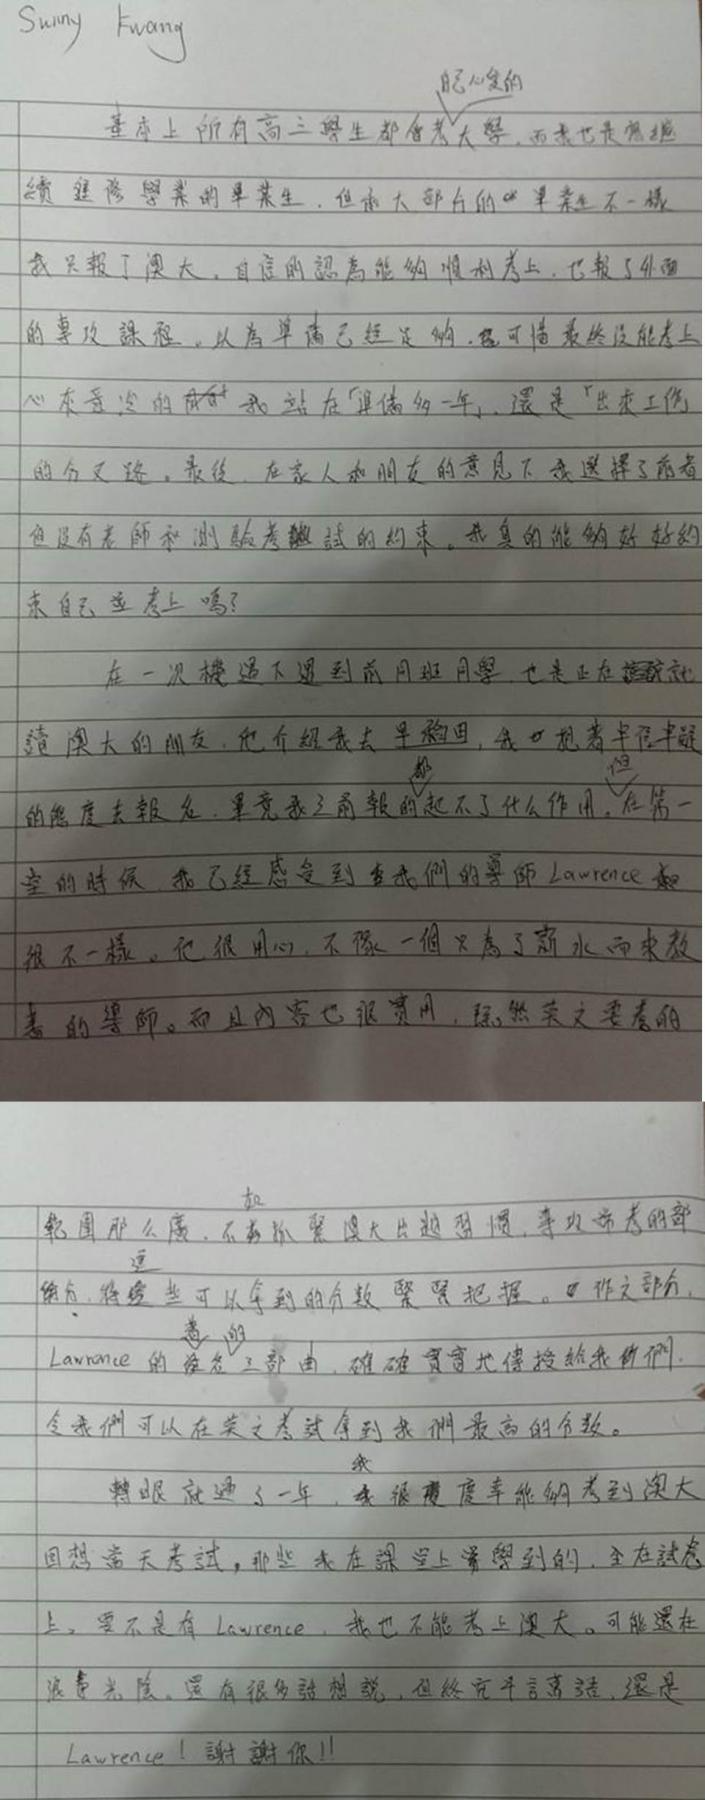 Sunny Kwang
自己心愛的
基本上所有高三學生都會考大學，而我也是想繼
續進修學業的畢業生，但和大部份的畢業生不一樣
我只報了澳大，自信的認為能夠順利考上，也報了外面
的專攻課程，以為準備已經足夠，可惜最終沒能考上
心灰意冷的我站在「準備多一年」，還是「出來工作」
的分叉路。最後，在家人和朋友的意見下我選擇了前者
但沒有老師和測驗考試的約束。我真的能夠好好約
束自己並考上嗎？
在一次機遇下遇到前同班同學，也是正在就
讀澳大的朋友，他介紹我去，我抱著半信半疑
都 但
的態度去報名，畢竟我之前報的起不了什么作用。在第一
堂的時候，我已經感受到我們的導師Lawrence
很不一樣。他很用心，不像一個只為了薪水而來教
書的導師。而且內容也很實用，雖然英文要考的
如
範圍那么廣，不抓緊澳大出題習慣，專攻常考的部
這
份，將些可以拿到的分數緊緊把握。作文部分，
著 的
Lawrence的名三部曲，確確實實地傳授給我們，
令我們可以在英文考試拿到我們最高的分數。
我
轉眼就過了一年，很慶幸能夠考到澳大
回想當天考試，那些我在課堂上學到的，全在試卷
上。要不是有Lawrence，我也不能考上澳大。可能還在
浪費光陰。還有很多話想說，但終究千言萬語，還是
Lawrence！謝謝你!!